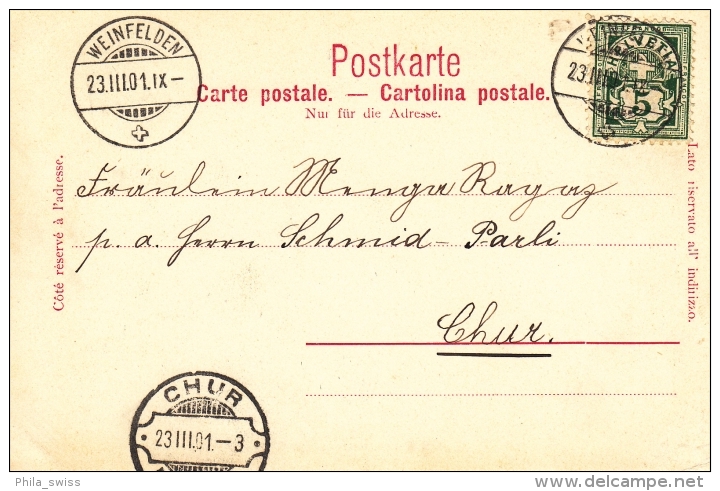 WEINFELDEN
23.III.01.IX–
Postkarte
Carte postale. — Cartolina postale.
Nur für die Adresse.
HELVETIA
5
Côté réservé à l'adresse.
Lato riservato all' indirizzo.
Fräulein Menga Ragaz
p. a. Herrn Schmid-Parli
Chur.
CHUR
23 III.01.–3
Phila_swiss
delcampe.net